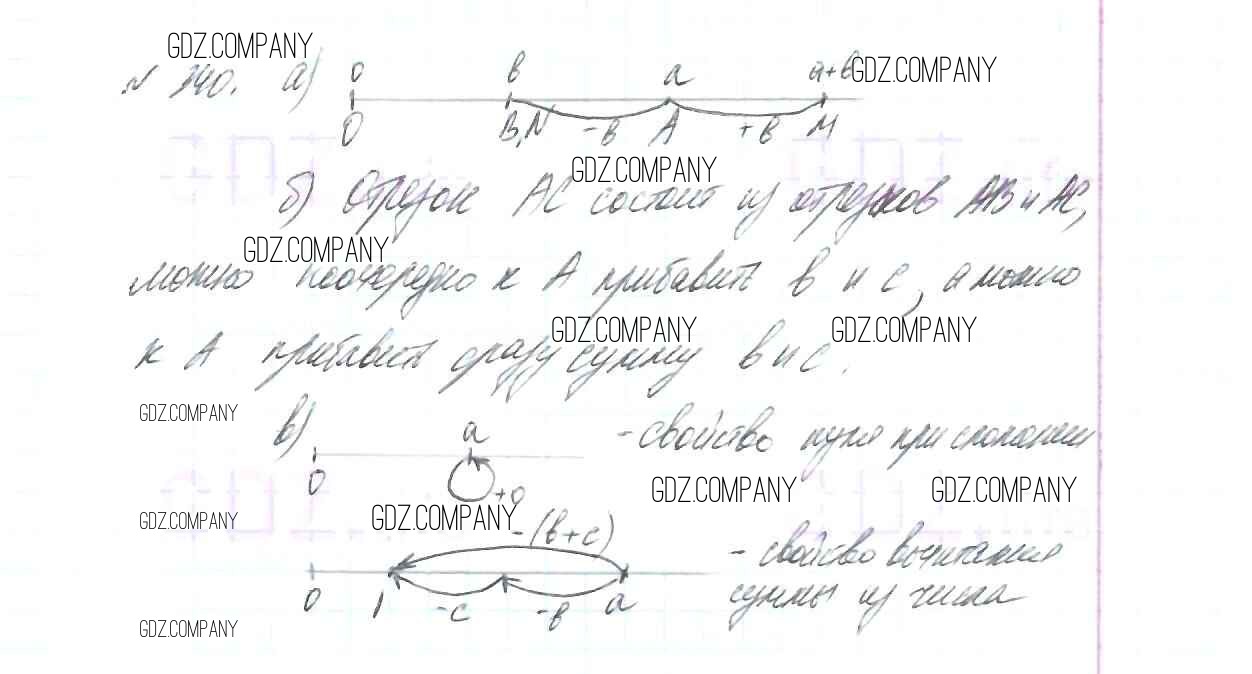 GDZ.COMPANY
№ 340. а) 0 в а а+в GDZ.COMPANY
0 B,N -в A +в M
GDZ.COMPANY
б) Отрезок АС состоит из отрезков АВ и АС,
GDZ.COMPANY
можно поочередно к А прибавить в и с, а можно
GDZ.COMPANY GDZ.COMPANY
к А прибавить сразу сумму в и с.
GDZ.COMPANY
в) а - свойство нуля при сложении
0 +0
GDZ.COMPANY GDZ.COMPANY
GDZ.COMPANY GDZ.COMPANY
-(в+с) - свойство вычитания
0 1 -с -в а суммы из числа
GDZ.COMPANY